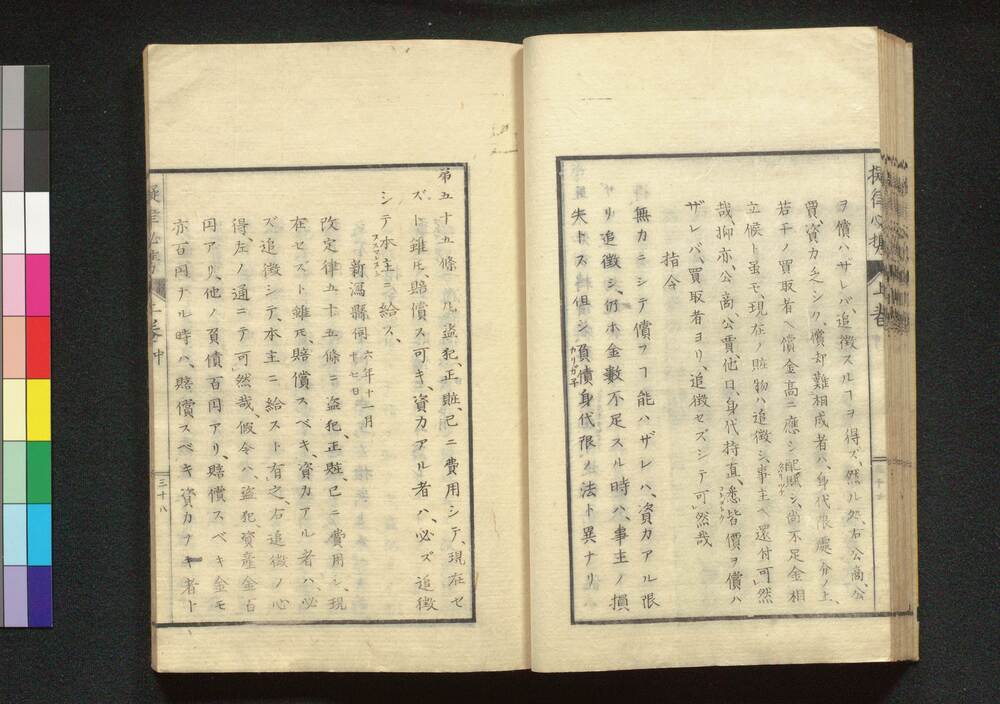 ヲ償ハサレバ、追徴スルヿヲ得ズ、然ル処、右公商、公
買、資力乏シク、償却難相成者ハ、身代限處分ノ上、
若干ノ買取者ヘ償金高ニ應シ配賦シ、尚不足金相
立候ト虽モ、現在ノ贓物ハ追徴シ、事主ヘ還付可然
哉、抑亦、公商、公買、他日、身代持直、悉皆價ヲ償ハ
ザレバ、買取者ヨリ、追徴セズシテ可然哉
指令
無力ニシテ償フヿ能ハザレハ、資力アル限
リ追徴シ、仍ホ金數不足スル時ハ、事主ノ損
失トス但シ、負債身代限ノ法ト異ナリ
擬律必携 上巻
第五十五條、凡盗犯、正贓、已ニ費用シテ、現在セ
ズト雖𪜈、賠償ス可キ、資力アル者ハ、必ズ追徴
シテ本主ニ給ス、
新潟縣伺 六年十一月十七日
改定律五十五條ニ盗犯、正贓、已ニ費用シ、現
在セズト雖𪜈、賠償スベキ、資力アル者ハ、必
ズ追徴シテ、本主ニ給スト有之、右追徴ノ心
得、左ノ通ニテ可然哉、假令ハ、盗犯、資産金百
円アリ、他ノ負債百円アリ、賠償スベキ金モ
亦百円ナル時ハ、賠償スベキ資力ナキ者ト
上巻 中
三十八